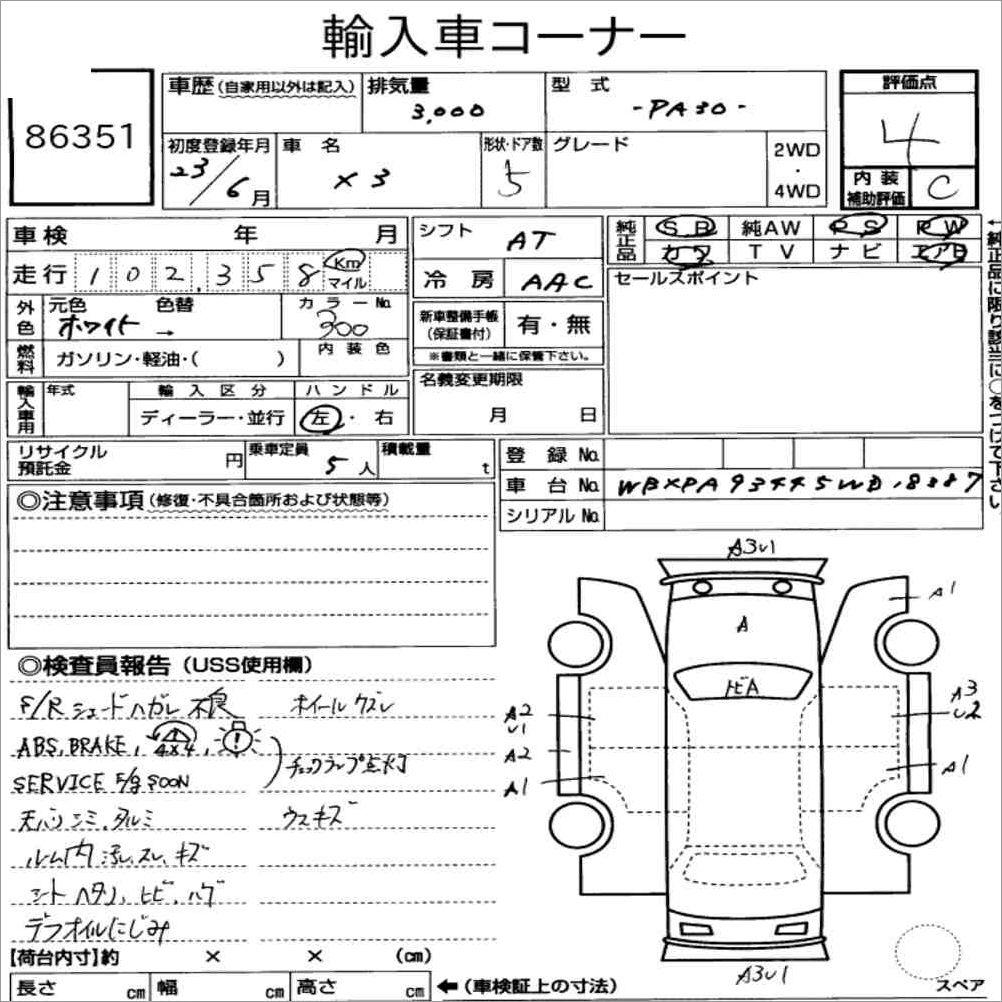 輸入車コーナー
86351
車歴(自家用以外は記入)
排気量
3,000
型 式
-PA30-
評価点
4
初度登録年月
23/6月
車 名
X3
形状・ドア数
5
グレード
2WD
・
4WD
内 装
補助評価
C
車検 年 月
シフト
AT
純正品
SR 純AW PS PW
カワ TV ナビ エアB
走行 102,358 Km
マイル
冷 房
AAC
セールスポイント
外色
元色 色替
ホワイト →
カラーNo.
300
新車整備手帳
(保証書付)
有・無
※書類と一緒に保管下さい。
燃料
ガソリン・軽油・( )
内 装 色
名義変更期限
月 日
輸入車用
年式
輸 入 区 分
ディーラー・並行
ハ ン ド ル
左・右
←純正品に限り該当に○をつけて下さい
リサイクル
預託金
円
乗車定員
5人
積載量
t
登 録 No.
車 台 No. WBXPA93445WD.8387
シリアルNo.
◎注意事項(修復・不具合箇所および状態等)
A3U1
A
トビA
A1
A2
U1
A2
A1
A3
U2
A1
A3U1
◎検査員報告(USS使用欄)
F/R シェードハガレ 不良 ホイールクズレ
ABS, BRAKE, 4x4, !
チェックランプ点灯
SERVICE E/g SOON
天バリ シミ、タルミ ウスキズ
ルーム内 汚レ、スレ、キズ
シート ヘタリ、ヒビ、ハゲ
デフオイルにじみ
【荷台内寸】約 × × (cm)
長さ cm 幅 cm 高さ cm
←(車検証上の寸法)
スペア